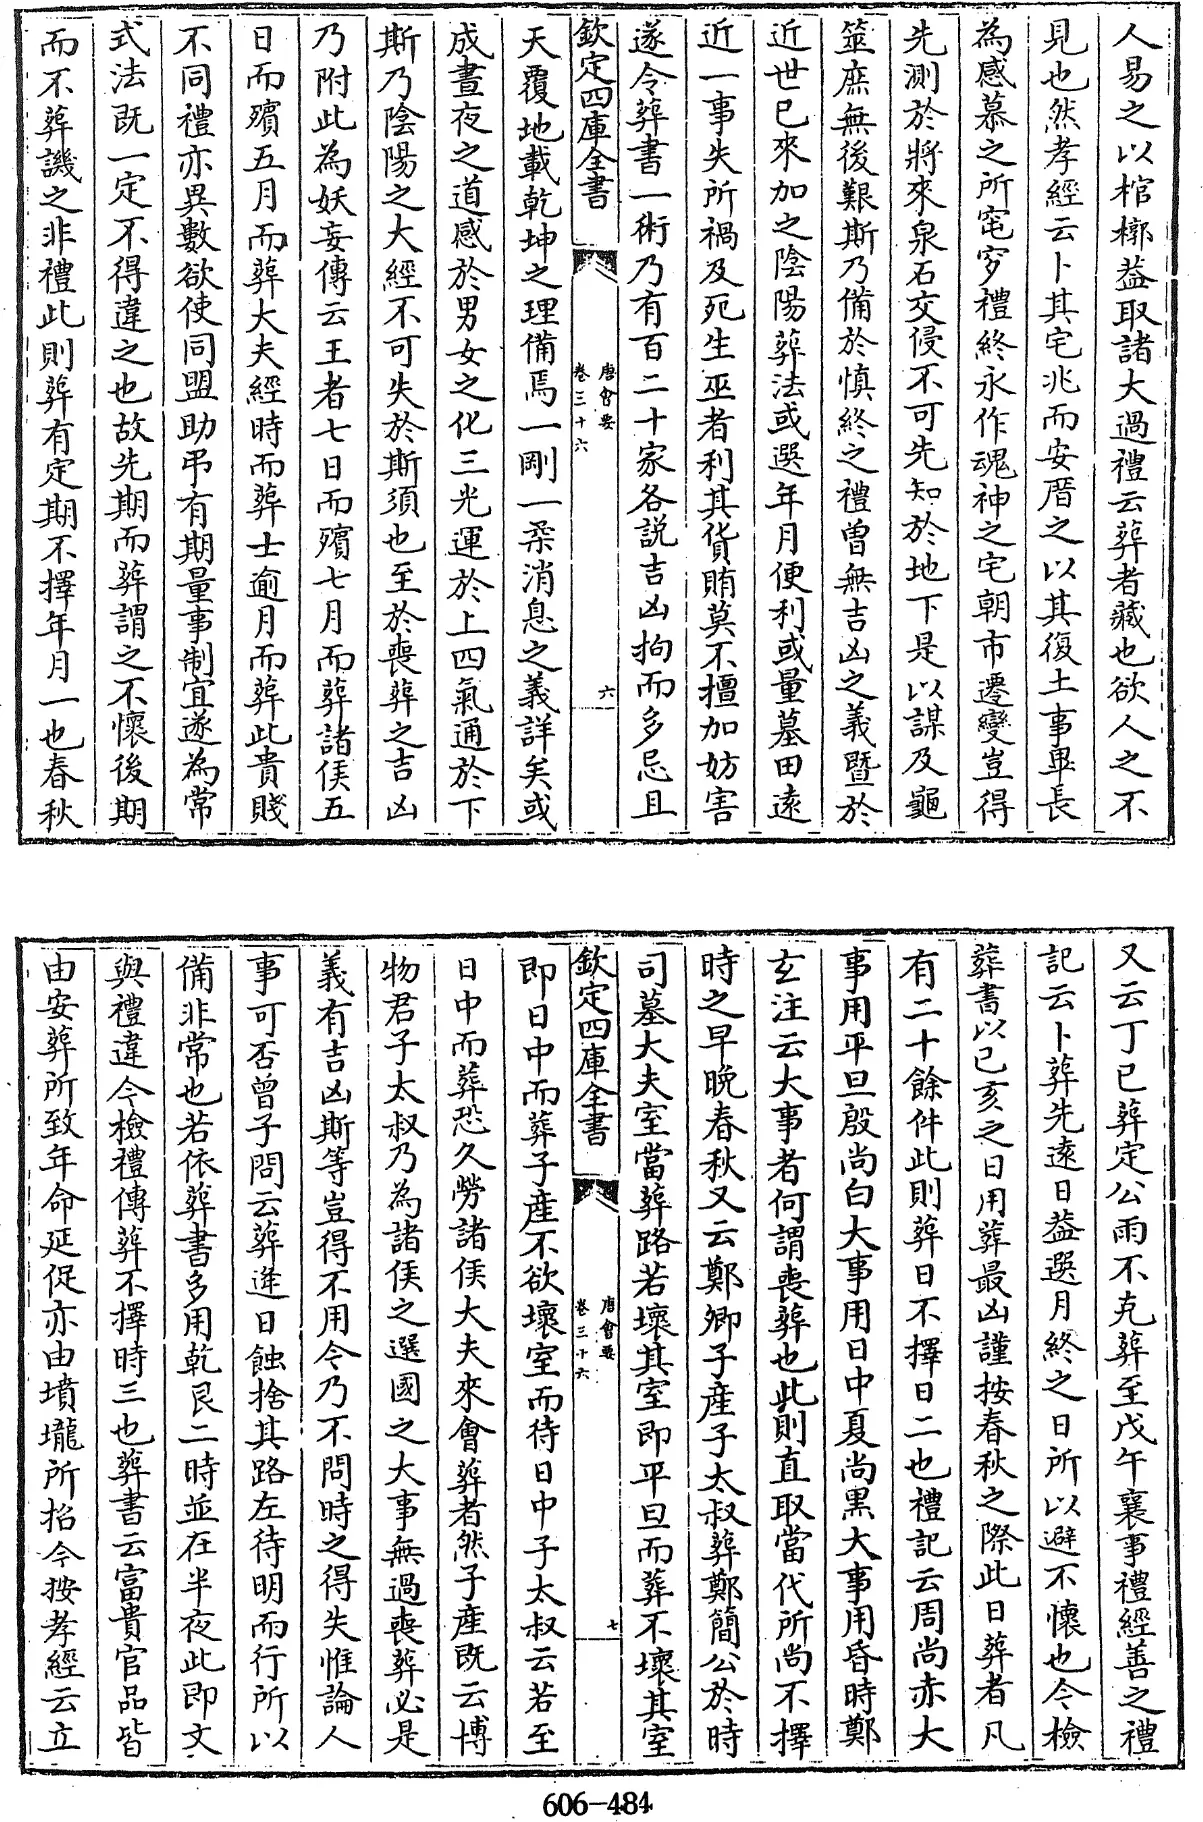 人易之以棺槨蓋取諸大過禮云葬者藏也欲人之不
見也然孝經云卜其宅兆而安厝之以其復土事畢長
為感慕之所窀穸禮終永作魂神之宅朝市遷變豈得
先測於將來泉石交侵不可先知於地下是以謀及龜
筮庶無後艱斯乃備於慎終之禮曽無吉凶之義暨於
近世已來加之陰陽葬法或選年月便利或量墓田逺
近一事失所禍及死生巫者利其貨賄莫不擅加妨害
遂令葬書一術乃有百二十家各說吉凶拘而多忌且
欽定四庫全書
唐會要
卷三十六
六
天覆地載乾坤之理備焉一剛一柔消息之義詳矣或
成晝夜之道感於男女之化三光運於上四氣通於下
斯乃陰陽之大經不可失於斯須也至於喪葬之吉凶
乃附此為妖妄傳云王者七日而殯七月而葬諸侯五
日而殯五月而葬大夫經時而葬士逾月而葬此貴賤
不同禮亦異數欲使同盟助弔有期量事制宜遂為常
式法既一定不得違之也故先期而葬謂之不懷後期
而不葬譏之非禮此則葬有定期不擇年月一也春秋
又云丁巳葬定公雨不克葬至戊午襄事禮經善之禮
記云卜葬先逺日蓋選月終之日所以避不懷也今檢
葬書以己亥之日用葬最凶謹按春秋之際此日葬者凡
有二十餘件此則葬日不擇日二也禮記云周尚赤大
事用平旦殷尚白大事用日中夏尚黑大事用昏時鄭
玄注云大事者何謂喪葬也此則直取當代所尚不擇
時之早晚春秋又云鄭卿子產子太叔葬鄭簡公於時
司墓大夫室當葬路若壞其室即平旦而葬不壞其室
欽定四庫全書
唐會要
卷三十六
七
即日中而葬子產不欲壞室而待日中子太叔云若至
日中而葬恐久勞諸侯大夫來會葬者然子產既云博
物君子太叔乃為諸侯之選國之大事無過喪葬必是
義有吉凶斯等豈得不用今乃不問時之得失惟論人
事可否曾子問云葬逢日蝕捨其路左待明而行所以
備非常也若依葬書多用乾艮二時並在半夜此即文
與禮違今檢禮傳葬不擇時三也葬書云富貴官品皆
由安葬所致年命延促亦由墳壠所招今按孝經云立
606-484